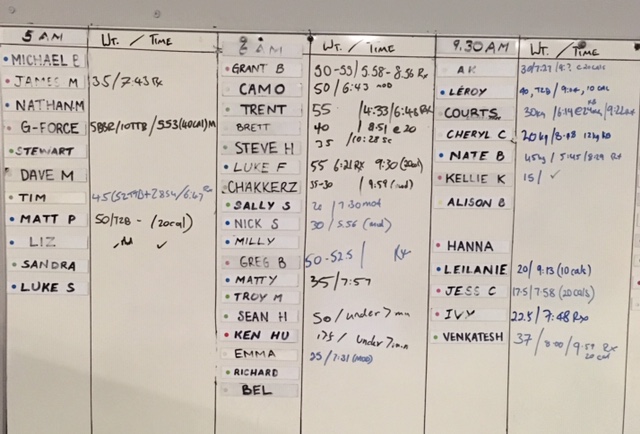 5 AM WT. / TIME
MICHAEL
JAMES M 35/7:43 Rx
NATHAN M
G-FORCE
STEWART
DAVE M
TIM
MATT P 50/72B - (20cal)
LIZ ✓
SANDRA
LUKE S
AM WT. / TIME
GRANT B 50-55/5.58-8.56 Rx
CAMO 50 / 6:43 MOD
TRENT 55 / 4:33/6:46 Rx
BRETT 40 / 8:51 @ 20
STEVE H 35 /10:28
LUKE F 55 6:21 Rx 9:30 (20cal)
CHAKKERZ 35-30 / 9:59 (mod)
SALLY S / 7.30 mod
NICK S 30 / 5.56 (mod)
MILLY
GREG B 50-52.5 / Rx
MATTY 35/7:57
TROY M
SEAN H 50 / under 7 min
KEN HU / under 7min
EMMA 25 /7:31 (MOD)
RICHARD
BEL
9.30 AM WT / TIME
AK
LEROY
COURTS
CHERYL C 20kg / 12kg
NATE B 45kg / 5:45 / Rx
KELLIE K 15 / ✓
ALISON B
HANNA
LEILANIE 20 / 9:13 (10 cals)
JESS C 17.5 / 7:58 (20 cals)
IVY 22.5 / 7:48 Rx
VENKATESH 37 / 8:00 / 9:59 Rx
20 cal